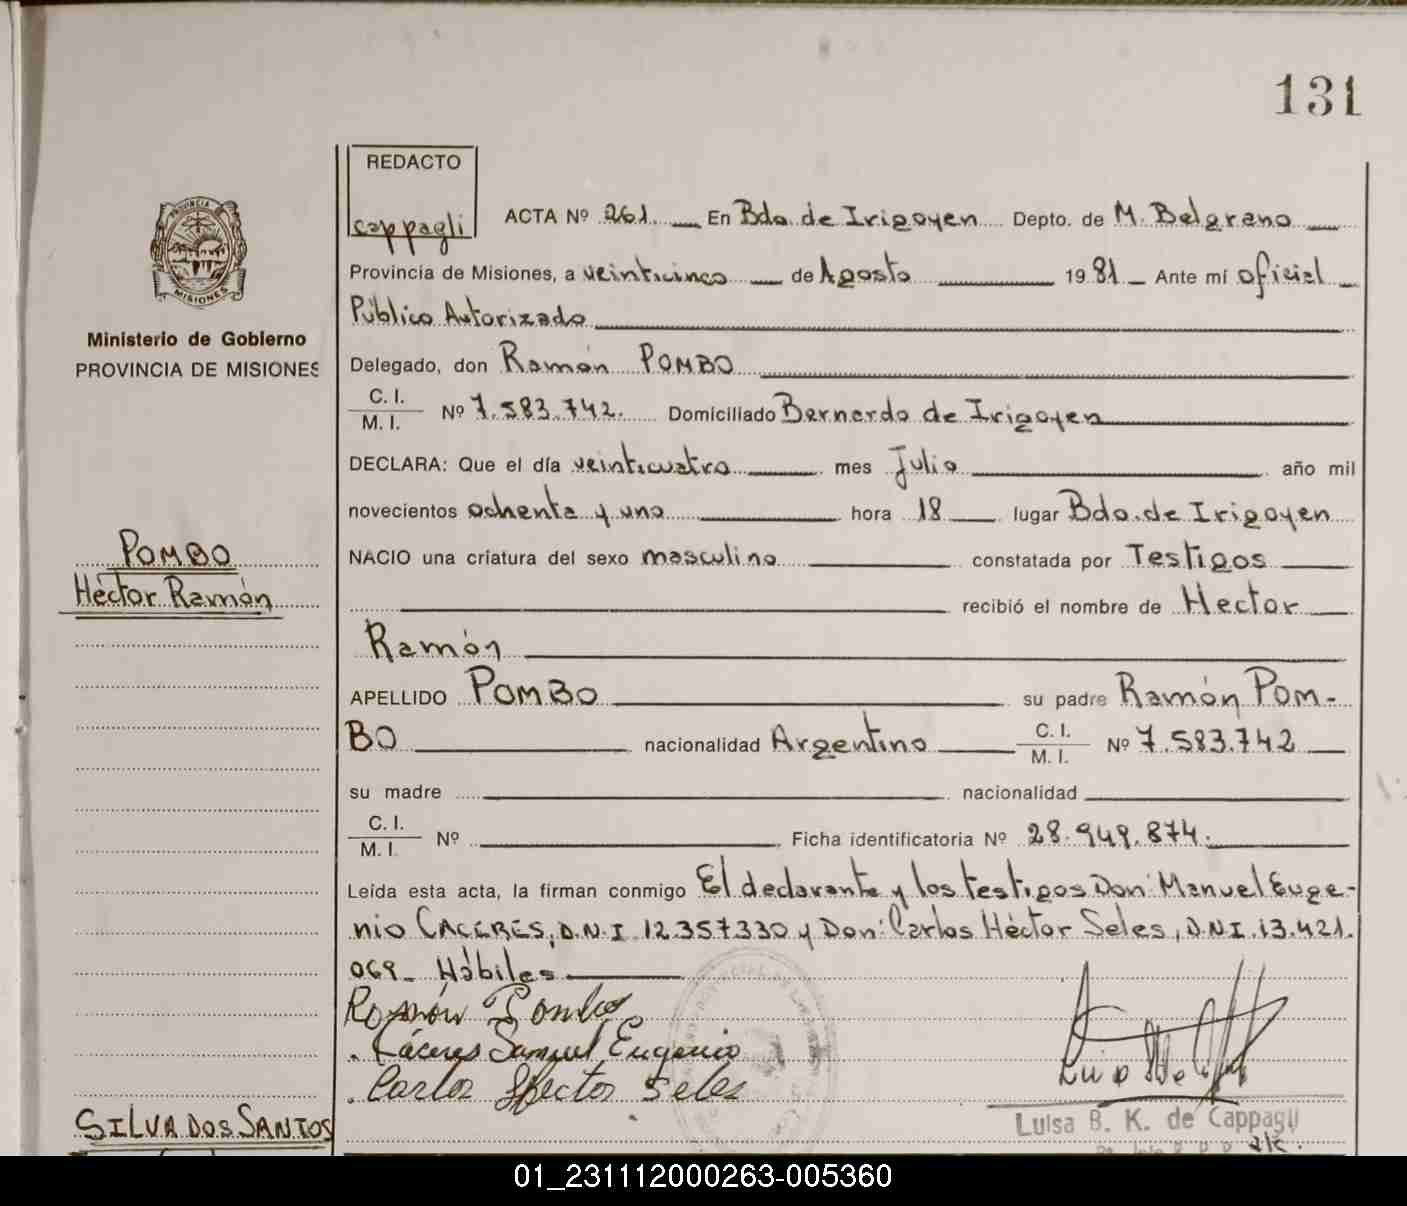 131
REDACTO
cappagli
ACTA Nº 261 En Bdo. de Irigoyen Depto. de M. Belgrano
Provincia de Misiones, a veinticinco de Agosto 1981 Ante mí oficial
Público Autorizado
Delegado, don Ramón POMBO
C. I.
M. I. Nº 7.583.742. Domiciliado Bernardo de Irigoyen
DECLARA: Que el día veinticuatro mes Julio año mil
novecientos ochenta y uno hora 18 lugar Bdo. de Irigoyen
NACIO una criatura del sexo masculino constatada por Testigos
recibió el nombre de Hector
Ramón
APELLIDO POMBO su padre Ramón POM-
BO nacionalidad Argentino C. I.
M. I. Nº 7.583.742
su madre nacionalidad
C. I.
M. I. Nº Ficha identificatoria Nº 28.949.874.
Leída esta acta, la firman conmigo El declarante y los testigos Don: Manuel Euge-
nio CACERES, D.N.I. 12.357330 y Don: Carlos Héctor Seles, D.N.I. 13.421.
069_ Hábiles
Ramón Pombo
Cáceres Samuel Eugenio
Carlos Hector Seles
Luisa B. K. de Cappagli
PROVINCIA
MISIONES
Ministerio de Gobierno
PROVINCIA DE MISIONES
POMBO
Héctor Ramón
SILVA DOS SANTOS
01_231112000263-005360